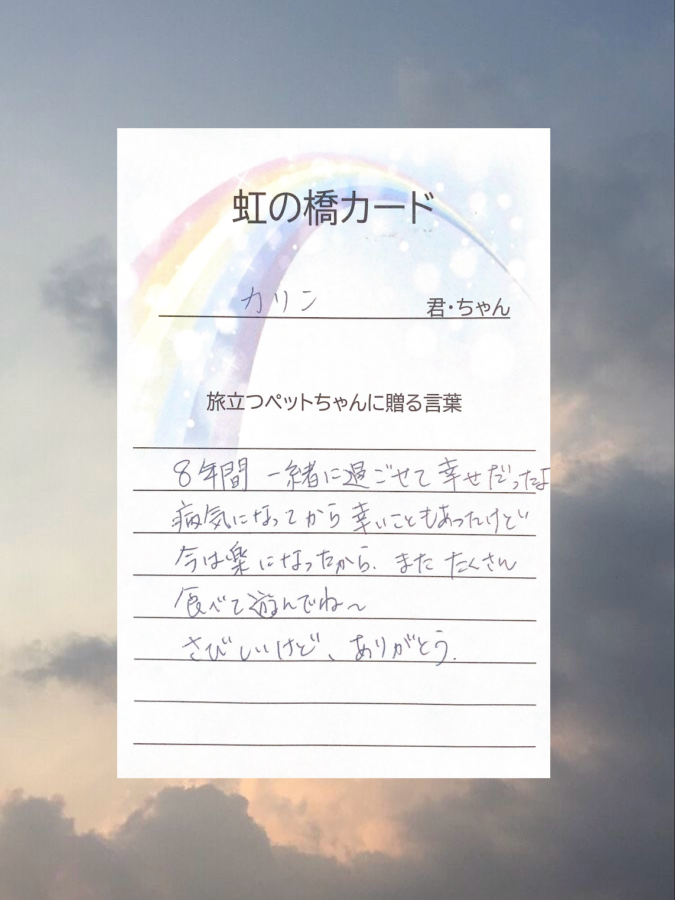 虹の橋カード
カリン 君・ちゃん
旅立つペットちゃんに贈る言葉
8年間 一緒に過ごせて幸せだったよ
病気になってから辛いこともあったけど
今は楽になったから、またたくさん
食べて遊んでね〜
さびしいけど、ありがとう.